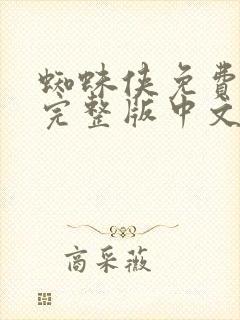 蜘蛛侠免費
完整版中文
商采薇